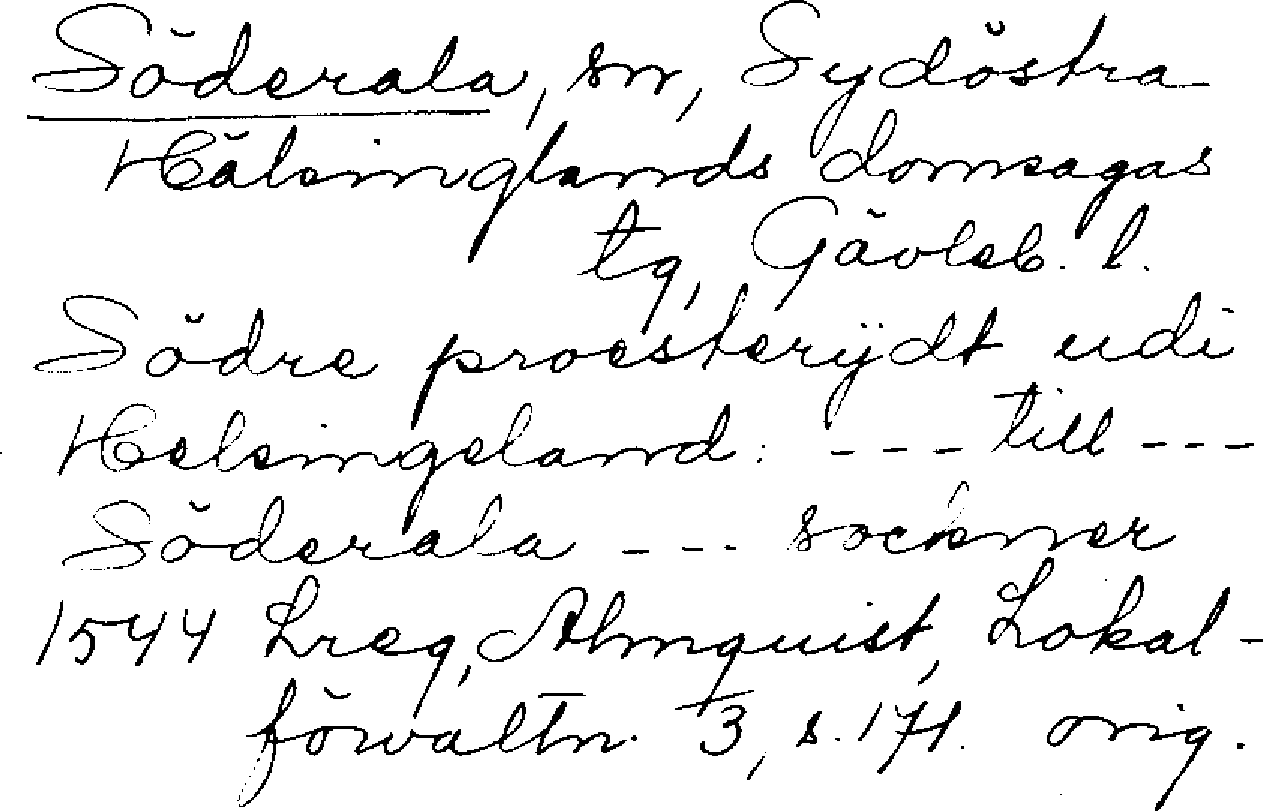 Söderala, sn, Sydöstra
Hälsinglands domsagas
tg, Gävleb. l.
Södre proesterÿdt udi
Helsingeland: --- till ---
Söderala --- sockner
1544 Lreg, Almquist, Lokal-
förvaltn. 3, s. 171. orig.